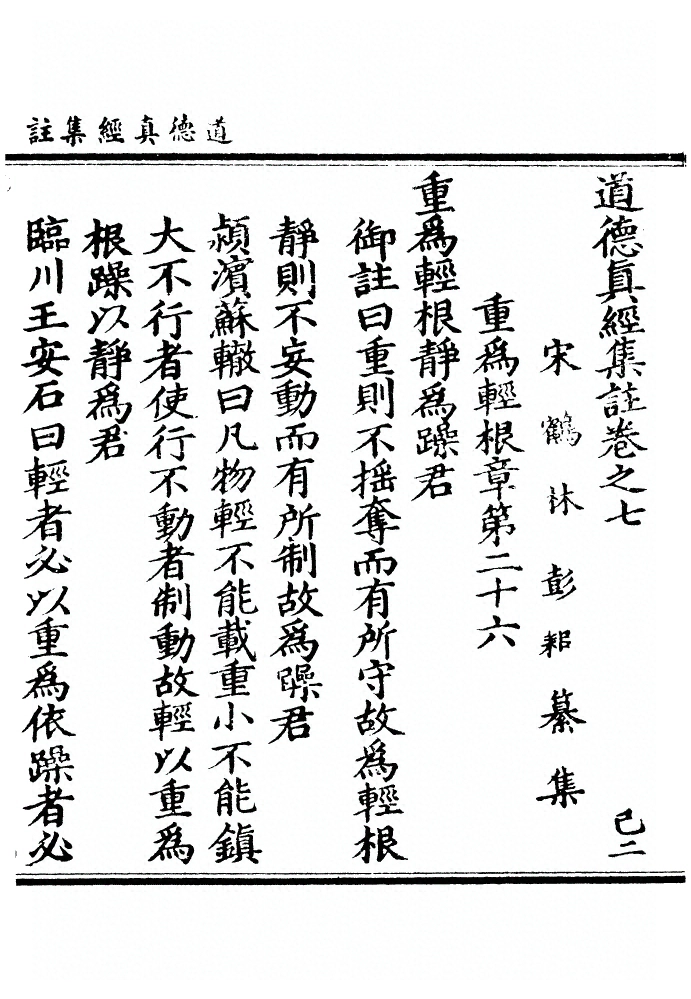 道德真經集註
道德真經集註卷之七 己二
宋鶴林彭耜纂集
重為輕根章第二十六
重為輕根靜為躁君
御註曰重則不揺奪而有所守故為輕根
靜則不妄動而有所制故為躁君
潁濱蘇轍曰凡物輕不能載重小不能鎮
大不行者使行不動者制動故輕以重為
根躁以靜為君
臨川王安石曰輕者必以重為依躁者必